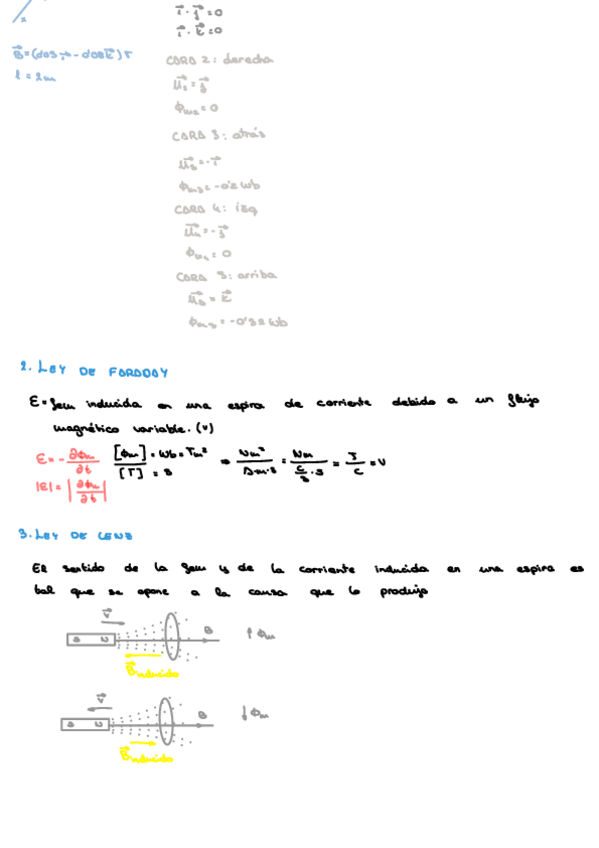 i⃗ · j⃗ = 0
i⃗ · k⃗ = 0
l = 2m
CARA 2: derecha
u⃗₂ = j⃗
Φm₂ = 0
CARA 3: atrás
u⃗₃ = -i⃗
Φm₃ = -0'2 Wb
CARA 4: izq
u⃗₄ = -j⃗
Φm₄ = 0
CARA 5: arriba
u⃗₅ = k⃗
Φm₅ = -0'32 Wb
2. LEY DE FARADAY
Ɛ = fem inducida en una espira de corriente debido a un flujo
magnético variable. (V)
Ɛ = - ∂Φm/∂t [Φm]/[T] = Wb = Tm² / = s ⇒ Nm²/Am·s = Nm/(C/s · s) = J/C = V
|Ɛ| = |∂Φm/∂t|
3. LEY DE LENZ
El sentido de la fem y de la corriente inducida en una espira es
tal que se opone a la causa que lo produjo
v⃗
S N B ↑ Φm
B⃗inducido
v⃗
S N B ↓ Φm
B⃗inducido